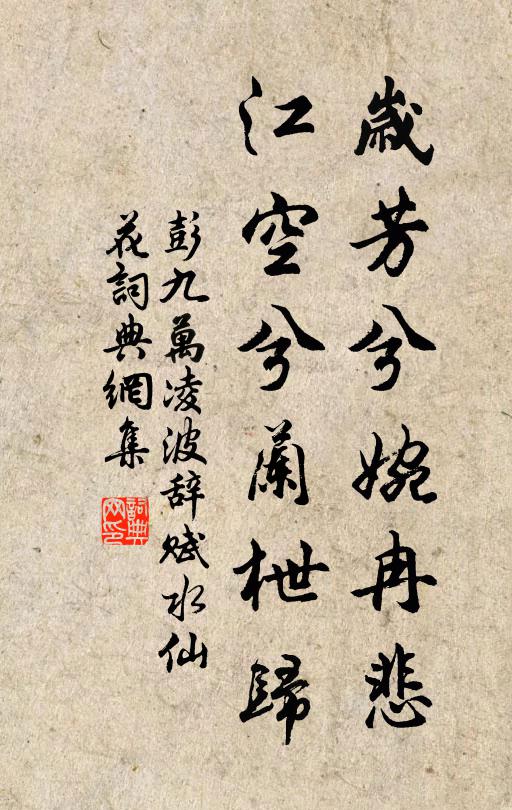 歲芳兮婉冉悲
江空兮蘭枻歸
彭九萬凌波辞賦水仙
花詞典網集
詞典
网印